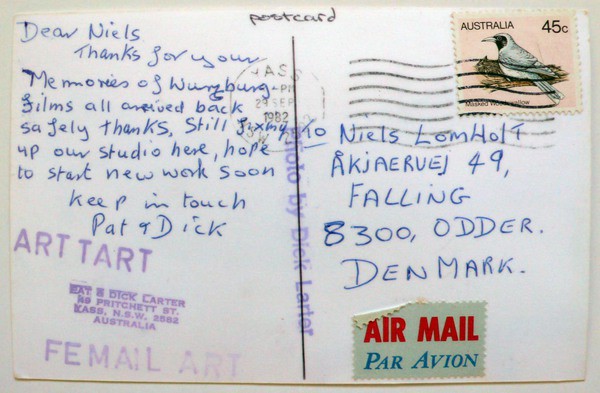 postcard
Dear Niels
Thanks for your
Memories of Wurzburg
films all arrived back
safely thanks, Still fixing
up our studio here, hope
to start new work soon
Keep in touch
Pat & Dick
ART TART
PAT & DICK LARTER
PRITCHETT ST.
YASS, N.S.W. 2582
AUSTRALIA
FEMAIL ART
YASS
-PM
29 SEP
1982
Photo by Dick Larter
AUSTRALIA 45c
Masked Woodswallow
To Niels Lomholt
ÅKJAERVEJ 49,
FALLING
8300, ODDER.
DENMARK.
AIR MAIL
PAR AVION